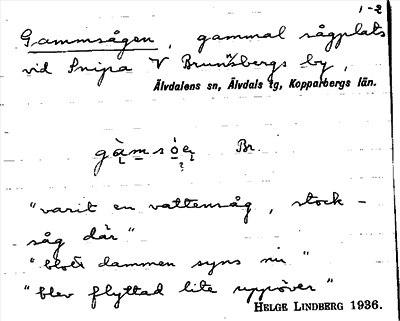 1-2
Gammsågen, gammal sågplats
vid Snipa V Brunnsbergs by,
Älvdalens sn, Älvdals tg, Kopparbergs län.
Br.
"varit en vattensåg, stock-
såg där"
"blott dammen syns nu"
"blev flyttad lite uppöver"
HELGE LINDBERG 1936.